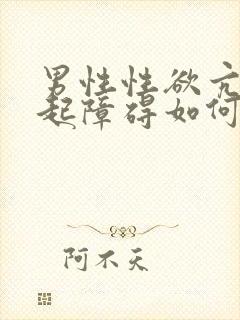 男性性欲亢
起障碍如何
阿不天